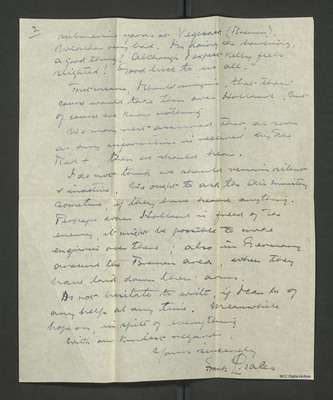 2
submarine yards at Vegesack (Bremen).
Weather very bad. I'm doing the bombing,
a good thing! Although I expect Kelly feels
slighted! Good luck to us all."
That means, I should imagine, that their
course would take them over Holland, but
of course we know nothing.
We may rest assured that as soon
as any information is received by the
Red +, then we should hear.
I do not think we should remain silent
& inactive. We ought to ask the Air Ministry
sometime if they have heard anything.
Perhaps when Holland is freed of the
enemy, it might be possible to make
enquiries over there; also in Germany
around the Bremen area, when they
have laid down their arms.
Do not hesitate to write, if I can be of
any help at any time. Meanwhile
hope on, in spite of everything
With our kindest regards
Yours sincerely
Frank
IBCC Digital Archive